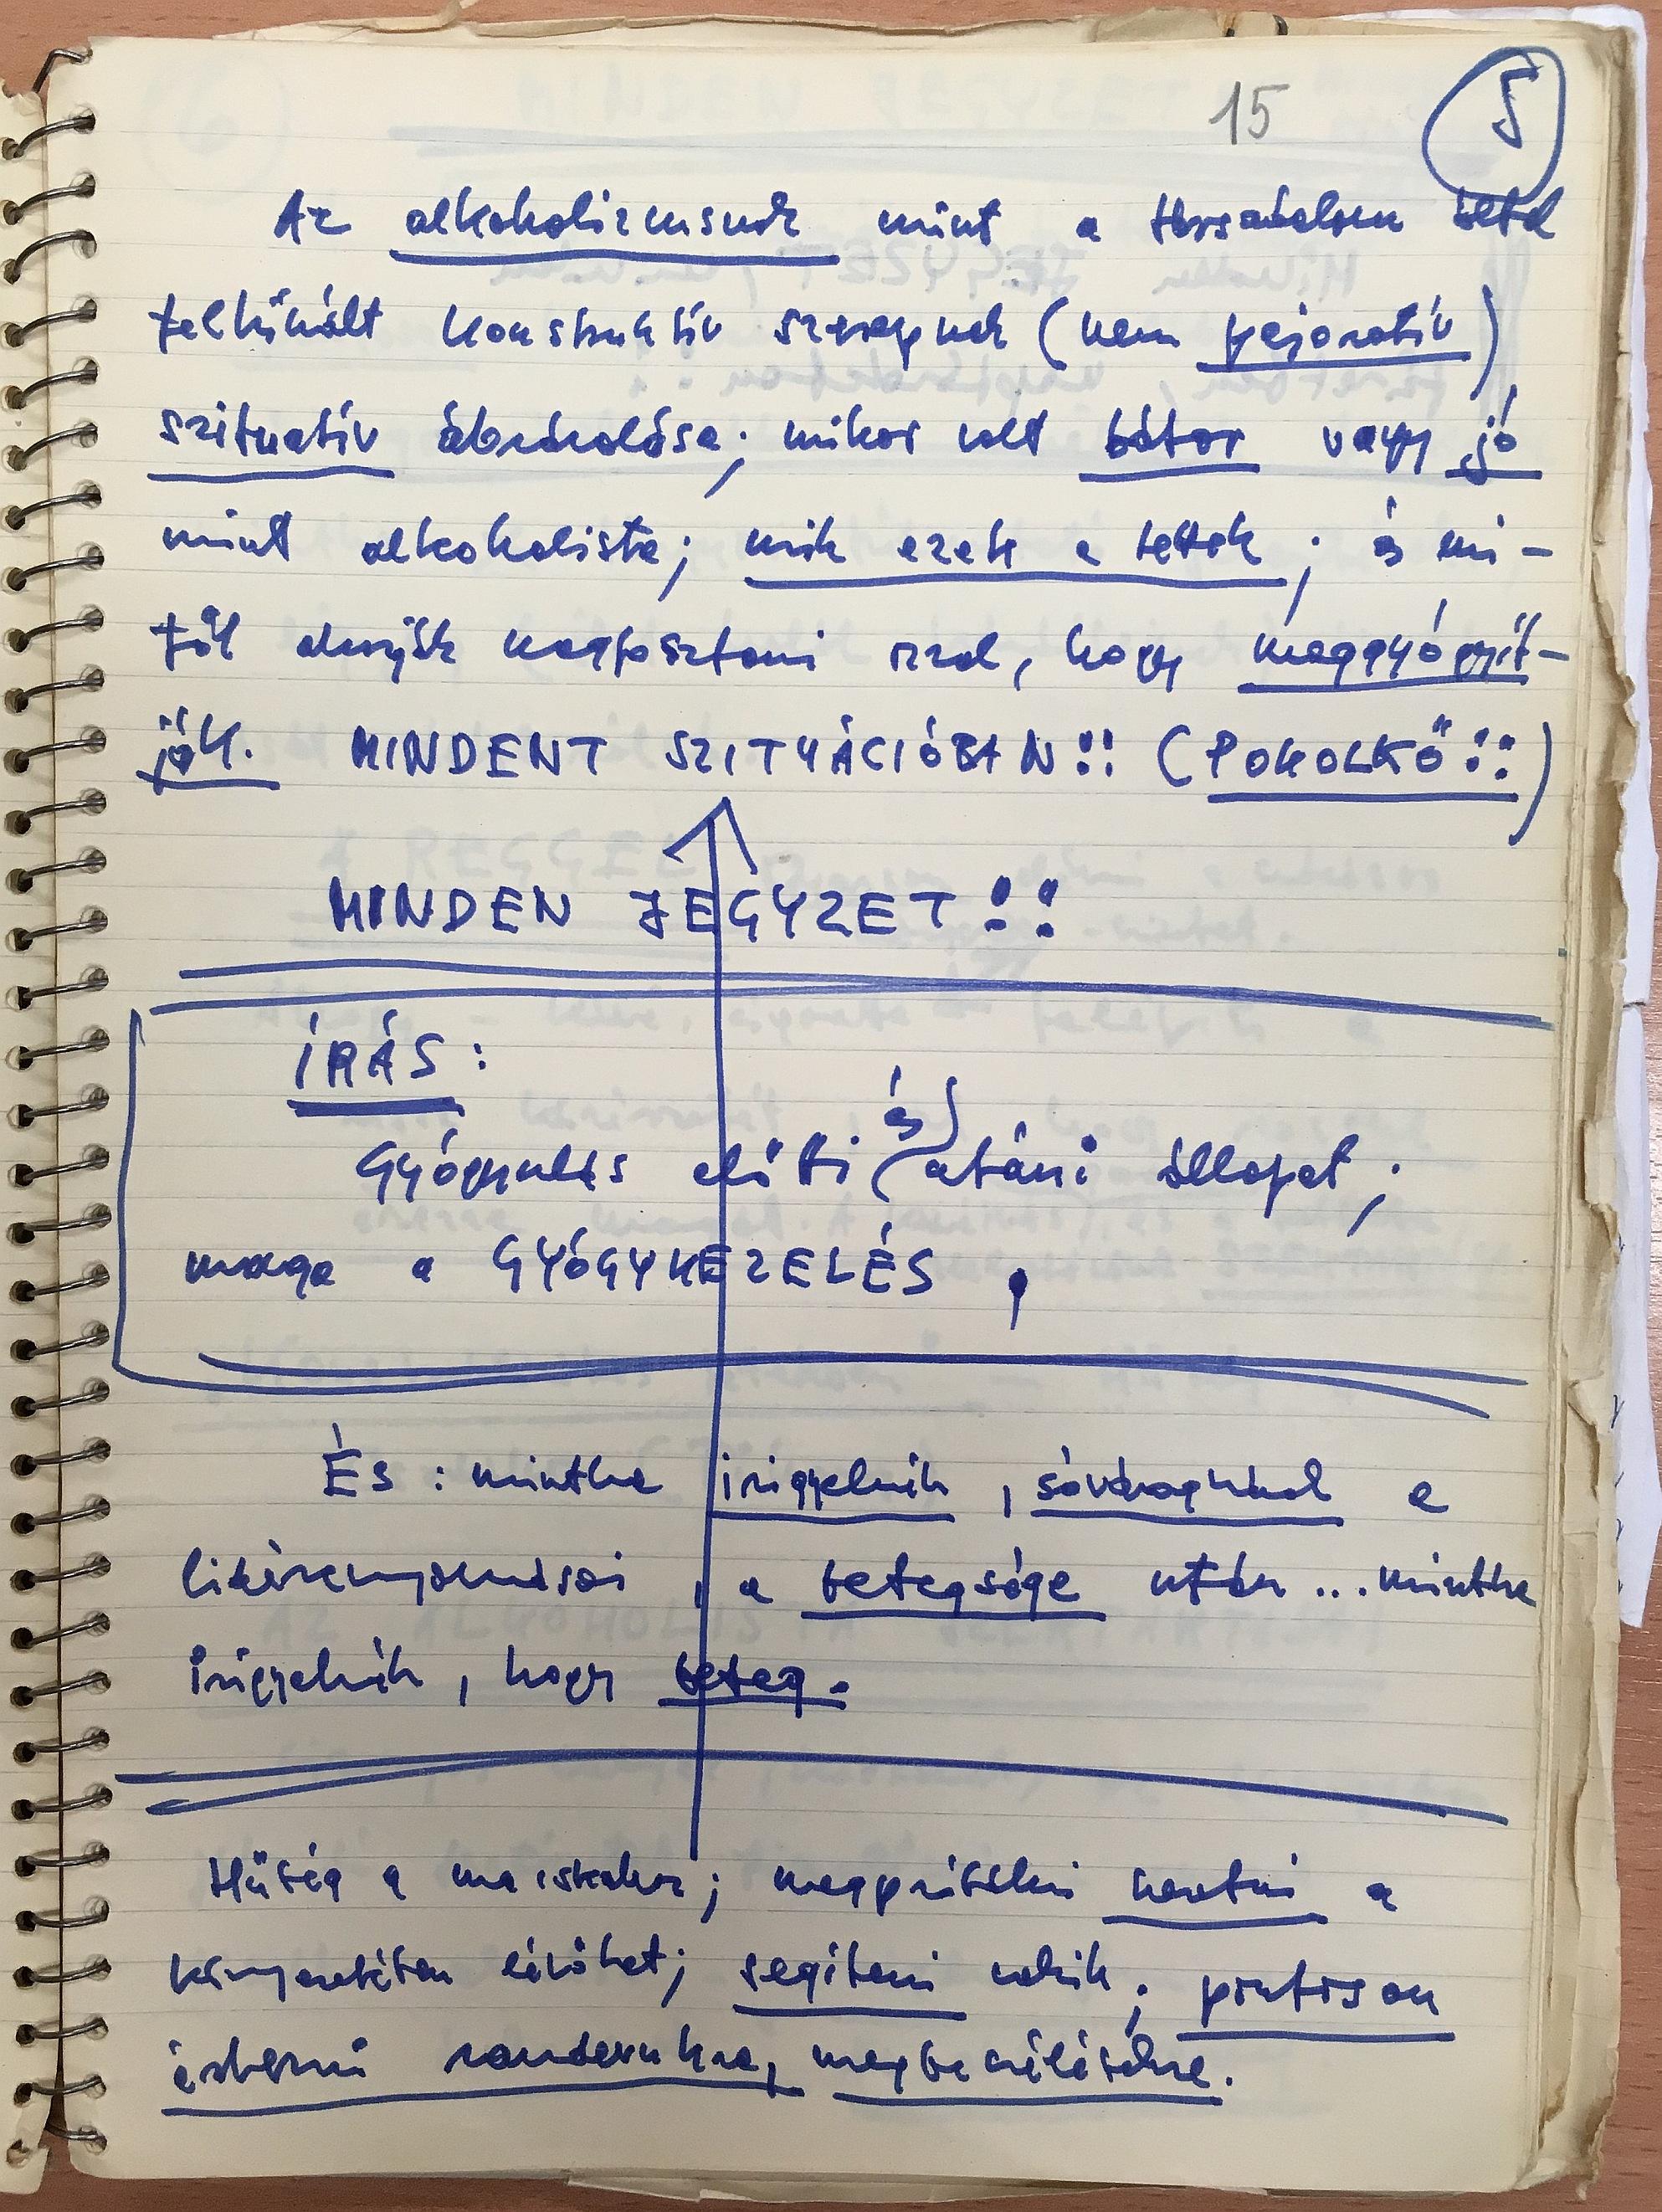 15
5
Az alkoholizmusnak mint a társadalom által
felkínált konstruktív szerepnek (nem pejoratív)
szituatív ábrázolása; mikor volt bátor vagy jó
mint alkoholista; mik ezek a tettek; és mi-
től akarják megfosztani azzal, hogy meggyógyít-
ják. MINDENT SZITUÁCIÓBAN!! (POKOLKŐ!!)
MINDEN JEGYZET!!
ÍRÁS:
és
Gyógyulás előtti utáni állapot;
maga a GYÓGYKEZELÉS,
És: mintha irigyelnék, sóvárognának a
, a betegsége után ... mintha
irigyelnék, hogy beteg.
Hűség a ; megpróbálni a
környezetében lévőket; segíteni nekik; pontosan
randevúkra, megbeszélésekre.